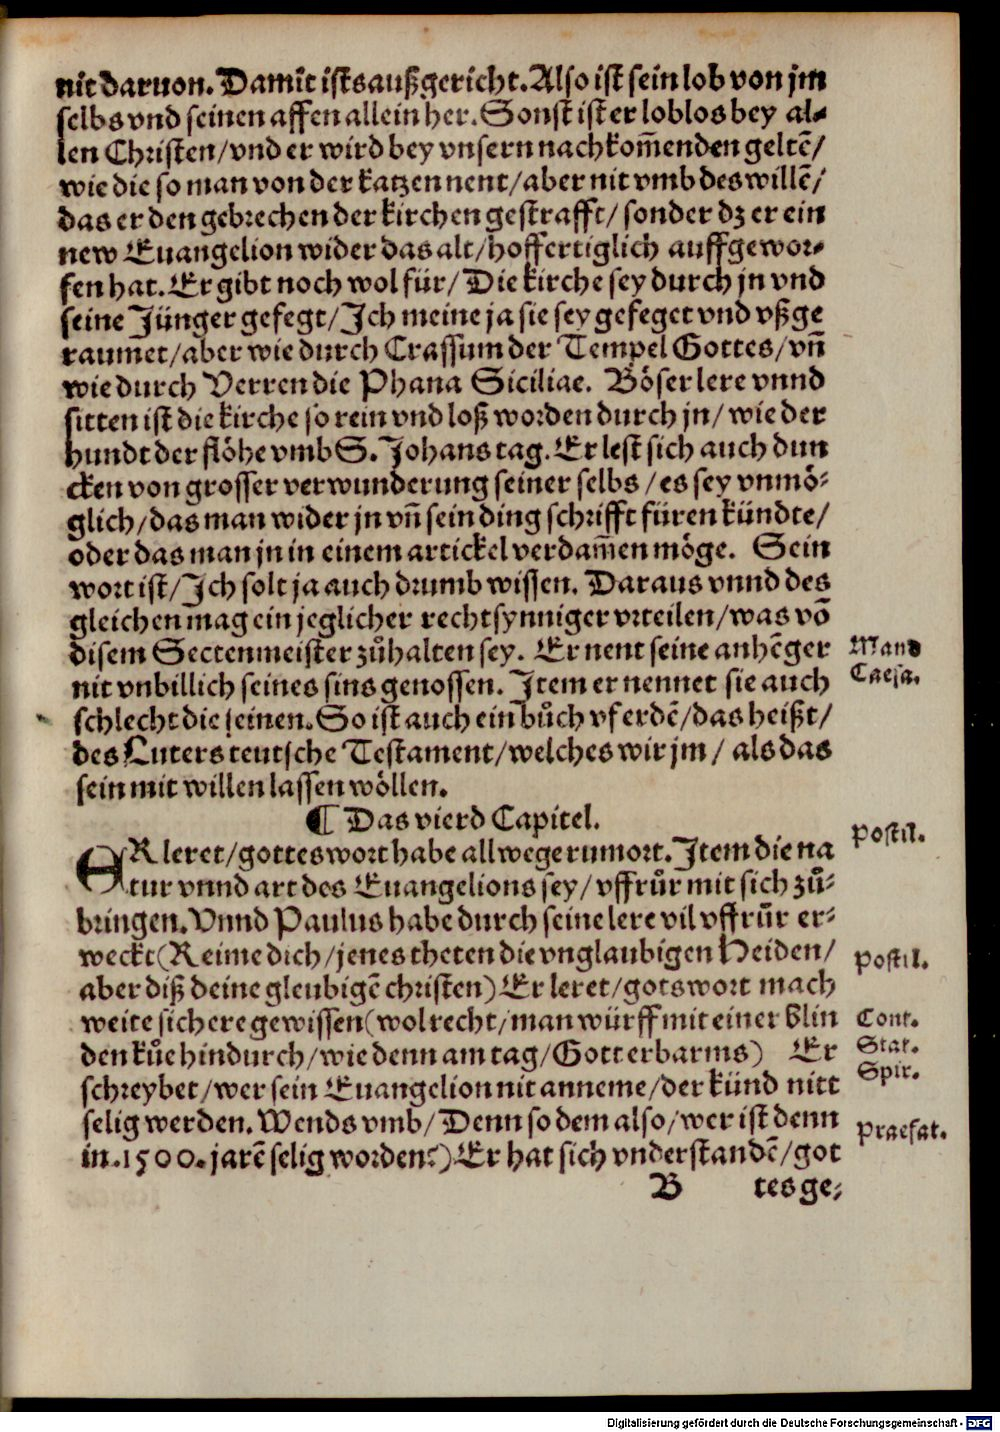 nit daruon. Damit ists außgericht. Also ist sein lob von jm
selbs vnd seinen affen allein her. Sonst ist er loblos bey al⸗
len Christen/ vnd er wird bey vnsern nachkom̄enden geltē/
wie die so man von der katzen nent/ aber nit vmb des willē/
das er den gebrechen der kirchen gestrafft/ sonder dz er ein
new Euangelion wider das alt/ hoffertiglich auffgewor⸗
fen hat. Er gibt noch wol für/ Die kirche sey durch jn vnd
seine Jünger gefegt/ Ich meine ja sie sey gefeget vnd vßge
raumet/ aber wie durch Crassum der Tempel Gottes/ vn̄
wie durch Verren die Phana Siciliae. Böser lere vnnd
sitten ist die kirche so rein vnd loß worden durch jn/ wie der
hundt der flöhe vmb S. Johans tag. Er lest sich auch dun
cken von grosser verwunderung seiner selbs/ es sey vnmö⸗
glich/ das man wider jn vn̄ sein ding schrifft füren kündte/
oder das man jn in einem artickel verdam̄en möge. Sein
wort ist/ Ich solt ja auch drumb wissen. Daraus vnnd des
gleichen mag ein jeglicher rechtsynniger vrteilen/ was vō
disem Sectenmeister zůhalten sey. Er nent seine anhēger
Mand
nit vnbillich seines sins genossen. Item er nennet sie auch
Caesa.
schlecht die seinen. So ist auch ein bůch vf erdē/ das heißt/
des Luters teutsche Testament/ welches wir jm/ als das
sein mit willen lassen wöllen.
¶ Das vierd Capitel.
ER leret/ gottes wort habe allwege rumort. Item die na
Postil.
tur vnnd art des Euangelions sey/ vffrůr mit sich zů⸗
bringen. Vnnd Paulus habe durch seine lere vil vffrůr er⸗
weckt (Reime dich/ jenes theten die vnglaubigen Heiden/
Postil.
aber diß deine gleubigē christen) Er leret/ gots wort mach
weite sichere gewissen (wol recht/ man würff mit einer blin
Cont.
den kůe hindurch/ wie denn am tag/ Gott erbarms) Er
Stat.
schreybet/ wer sein Euangelion nit anneme/ der künd nitt
Spir.
selig werden. Wends vmb/ Denn so dem also/ wer ist denn
Praefat.
in .1500. jarē selig worden?) Er hat sich vnderstandē/ got
B tes ge⸗
Digitalisierung gefördert durch die Deutsche Forschungsgemeinschaft - DFG